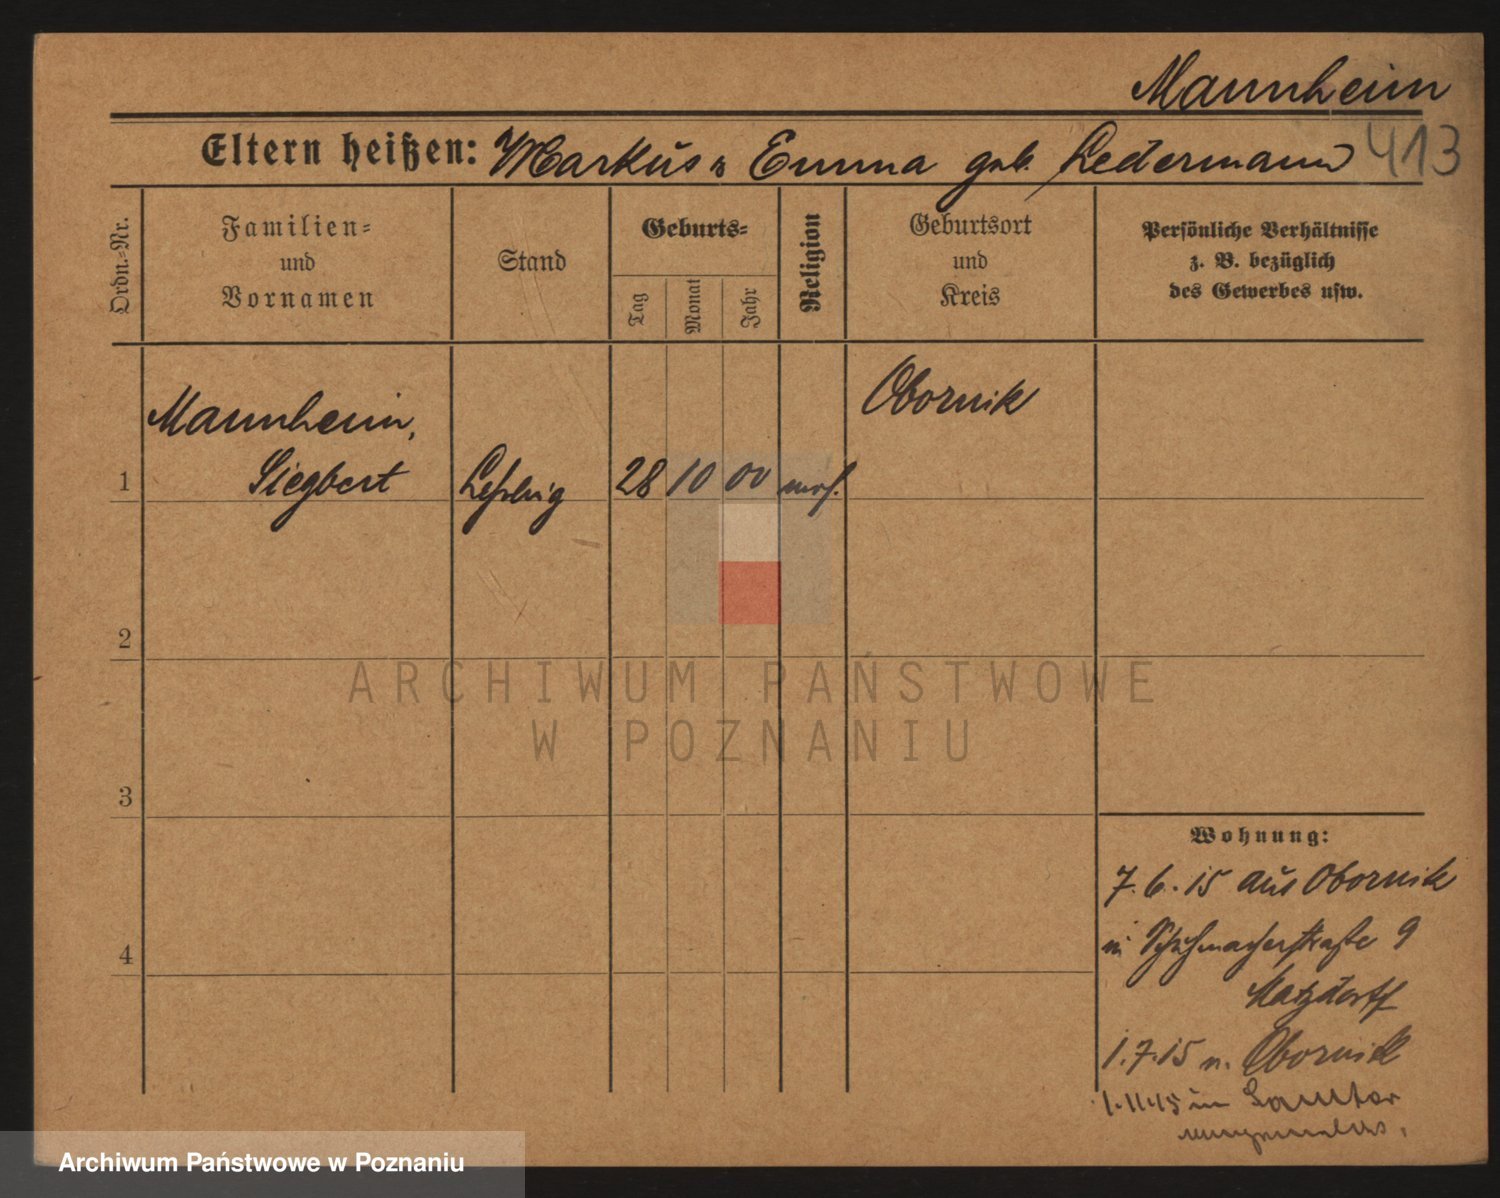 Mannheim
413
Eltern heißen: Markus u Emma geb. Ledermann
Ordn.-Nr.
Familien-
und
Vornamen
Stand
Geburts-
Tag
Monat
Jahr
Religion
Geburtsort
und
Kreis
Persönliche Verhältnisse
z. B. bezüglich
des Gewerbes usw.
Obornik
Mannheim,
1 Siegbert Lehrling 28 10 00 mos.
2
ARCHIWUM PAŃSTWOWE
W POZNANIU
3
Wohnung:
7.6.15 aus Obornik
in Schuhmacherstraße 9
4
Matzdorff
1.7.15 n. Obornik
1.11.15 in Samter
Archiwum Państwowe w Poznaniu